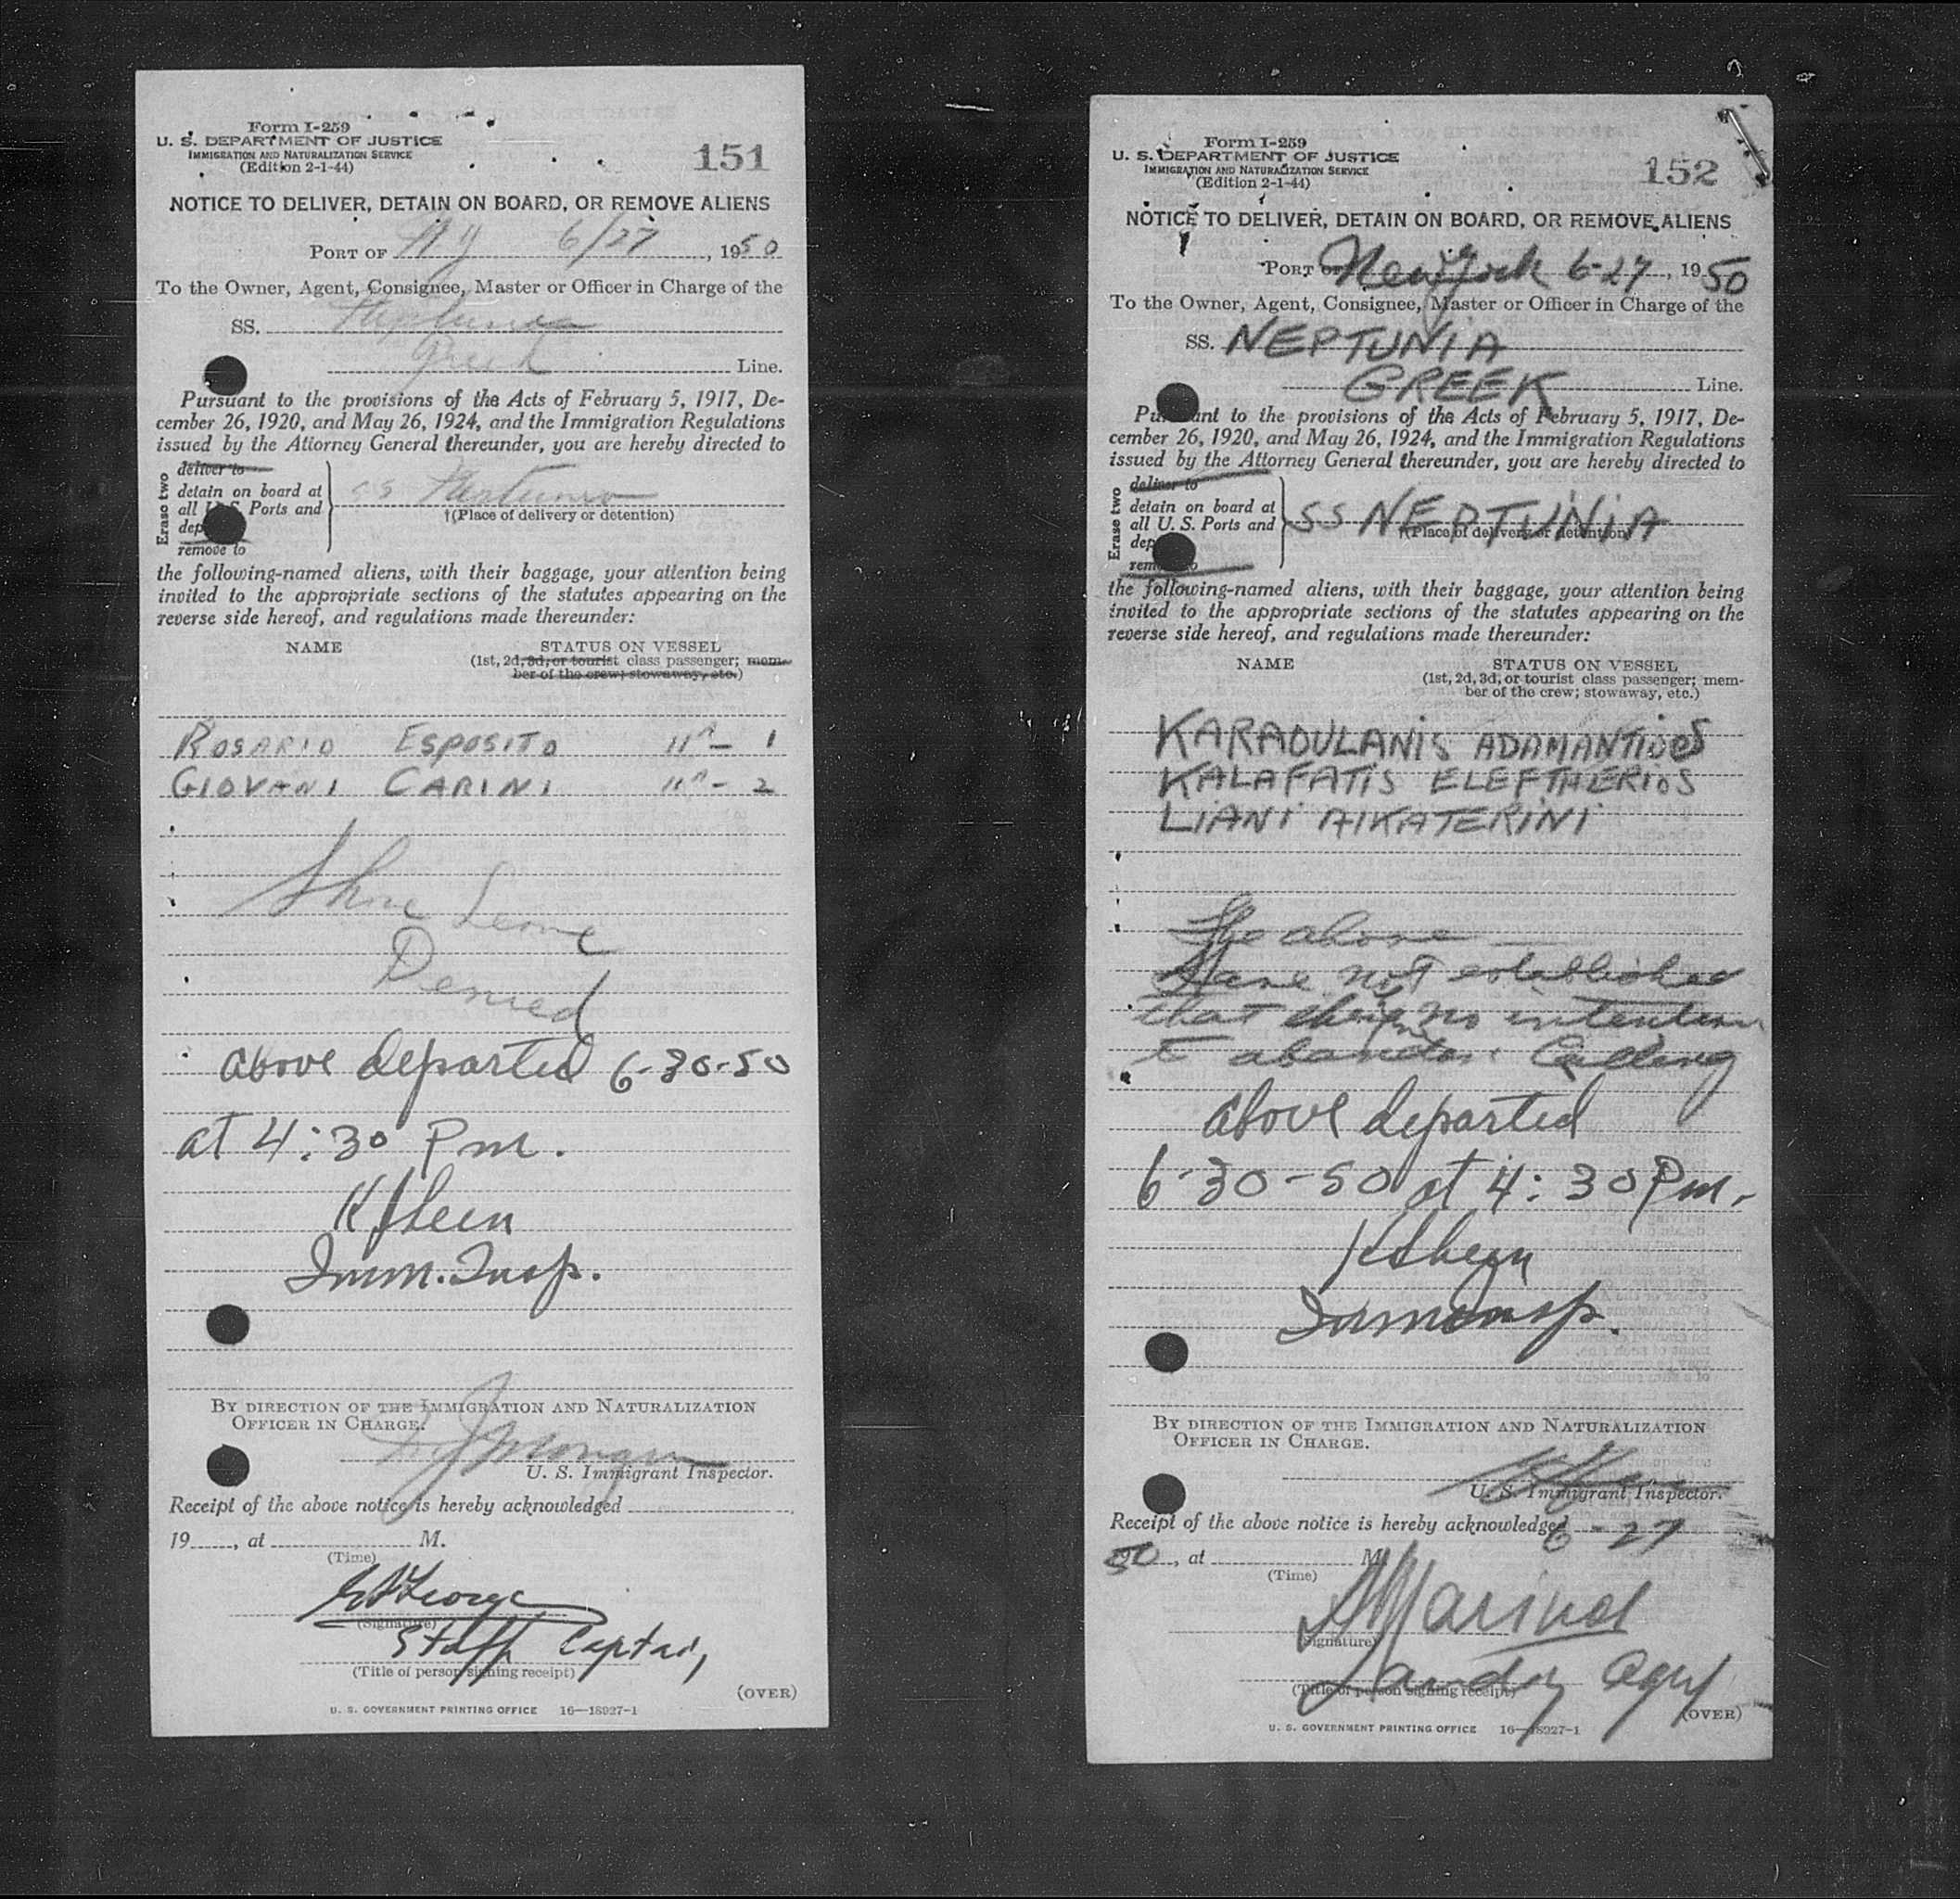 Form I-259
U. S. DEPARTMENT OF JUSTICE
IMMIGRATION AND NATURALIZATION SERVICE
(Edition 2-1-44)
151
NOTICE TO DELIVER, DETAIN ON BOARD, OR REMOVE ALIENS
PORT OF N Y 6/27, 1950
To the Owner, Agent, Consignee, Master or Officer in Charge of the
SS. Neptunia
Greek Line.
Pursuant to the provisions of the Acts of February 5, 1917, De-
cember 26, 1920, and May 26, 1924, and the Immigration Regulations
issued by the Attorney General thereunder, you are hereby directed to
Erase two
deliver to
detain on board at
all U. S. Ports and
dep
remove to
SS Neptunia
†(Place of delivery or detention)
the following-named aliens, with their baggage, your attention being
invited to the appropriate sections of the statutes appearing on the
reverse side hereof, and regulations made thereunder:
NAME STATUS ON VESSEL
(1st, 2d, 3d, or tourist class passenger; mem-
ber of the crew; stowaway, etc.)
ROSARIO ESPOSITO 1
GIOVANI CARINI 2
Shore Leave
Denied
above departed 6-30-50
at 4:30 Pm.
Imm. Insp.
BY DIRECTION OF THE IMMIGRATION AND NATURALIZATION
OFFICER IN CHARGE.
U. S. Immigrant Inspector.
Receipt of the above notice is hereby acknowledged
19____, at ____ M.
(Time)
(Signature)
Staff Captain
(Title of person signing receipt)
(OVER)
U. S. GOVERNMENT PRINTING OFFICE 16—18927-1
Form I-259
U. S. DEPARTMENT OF JUSTICE
IMMIGRATION AND NATURALIZATION SERVICE
(Edition 2-1-44)
152
NOTICE TO DELIVER, DETAIN ON BOARD, OR REMOVE ALIENS
PORT OF New York 6-27, 1950
To the Owner, Agent, Consignee, Master or Officer in Charge of the
SS. NEPTUNIA
GREEK Line.
Pursuant to the provisions of the Acts of February 5, 1917, De-
cember 26, 1920, and May 26, 1924, and the Immigration Regulations
issued by the Attorney General thereunder, you are hereby directed to
Erase two
deliver to
detain on board at
all U. S. Ports and
dep
remove to
SS NEPTUNIA
†(Place of delivery or detention)
the following-named aliens, with their baggage, your attention being
invited to the appropriate sections of the statutes appearing on the
reverse side hereof, and regulations made thereunder:
NAME STATUS ON VESSEL
(1st, 2d, 3d, or tourist class passenger; mem-
ber of the crew; stowaway, etc.)
KARAOULANIS ADAMANTIOS
KALAFATIS ELEFTHERIOS
LIANI AIKATERINI
The above
Have not established
that no intention
to abandon Calling
above departed
6-30-50 at 4:30 Pm.
Imm Insp.
BY DIRECTION OF THE IMMIGRATION AND NATURALIZATION
OFFICER IN CHARGE.
U. S. Immigrant Inspector.
Receipt of the above notice is hereby acknowledged 6-27
50, at ____ M.
(Time)
(Signature)
(Title of person signing receipt)
(OVER)
U. S. GOVERNMENT PRINTING OFFICE 16—18927-1